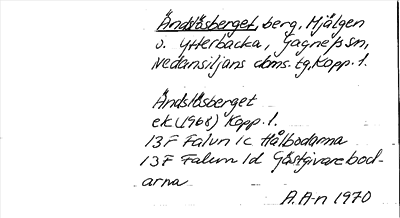 Ändslösberget, berg, Mjälgen
o. Ytterbacka, Gagnefs sn,
Nedansiljans doms. tg, Kopp. l.
Ändslösberget
ek (1968) Kopp. l.
13 F Falun 1c Hålbodarna
13 F Falun 1d Gästgivarebod-
arna
A. A-n 1970